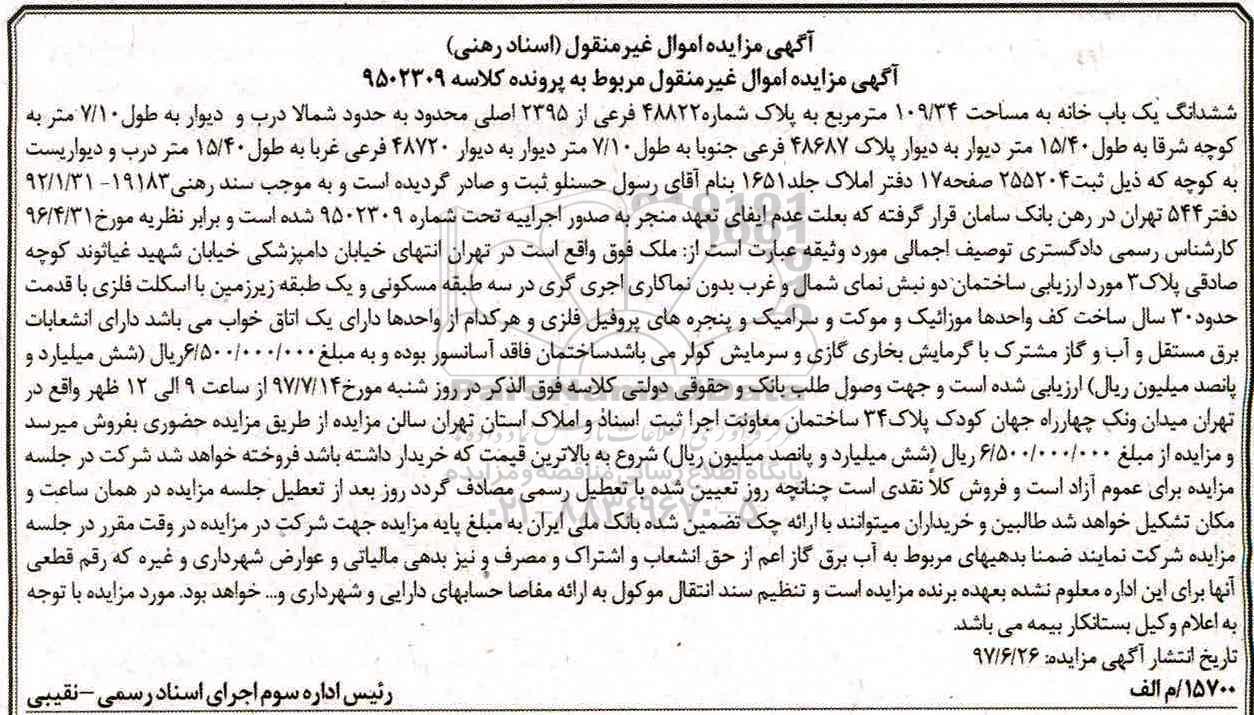 آگهی مزایده اموال غیرمنقول (اسناد رهنی)
آگهی مزایده اموال غیرمنقول مربوط به پرونده کلاسه ۹۵۰۲۳۰۹
ششدانگ یک باب خانه به مساحت ۱۰۹/۳۴ مترمربع به پلاک شماره۴۸۸۲۲ فرعی از ۲۳۹۵ اصلی محدود به حدود شمالا درب و دیوار به طول۷/۱۰ متر به
کوچه شرقا به طول۱۵/۴۰ متر دیوار به دیوار پلاک ۴۸۶۸۷ فرعی جنوبا به طول۷/۱۰ متر دیوار به دیوار ۴۸۷۲۰ فرعی غربا به طول۱۵/۴۰ متر درب و دیواریست
به کوچه که ذیل ثبت۲۵۵۲۰۴ صفحه۱۷ دفتر املاک جلد۱۶۵۱ بنام آقای رسول حسنلو ثبت و صادر گردیده است و به موجب سند رهنی۱۹۱۸۳- ۹۲/۱/۳۱
دفتر۵۴۴ تهران در رهن بانک سامان قرار گرفته که بعلت عدم ایفای تعهد منجر به صدور اجراییه تحت شماره ۹۵۰۲۳۰۹ شده است و برابر نظریه مورخ۹۶/۴/۳۱
کارشناس رسمی دادگستری توصیف اجمالی مورد وثیقه عبارت است از: ملک فوق واقع است در تهران انتهای خیابان دامپزشکی خیابان شهید غیاثوند کوچه
صادقی پلاک۳ مورد ارزیابی ساختمان دو نبش نمای شمال و غرب بدون نماکاری اجری گری در سه طبقه مسکونی و یک طبقه زیرزمین با اسکلت فلزی با قدمت
حدود۳۰ سال ساخت کف واحدها موزائیک و موکت و سرامیک و پنجره های پروفیل فلزی و هرکدام از واحدها دارای یک اتاق خواب می باشد دارای انشعابات
برق مستقل و آب و گاز مشترک با گرمایش بخاری گازی و سرمایش کولر می باشدساختمان فاقد آسانسور بوده و به مبلغ۶/۵۰۰/۰۰۰/۰۰۰ریال (شش میلیارد و
پانصد میلیون ریال) ارزیابی شده است و جهت وصول طلب بانک و حقوقی دولتی کلاسه فوق الذکر در روز شنبه مورخ۹۷/۷/۱۴ از ساعت ۹ الی ۱۲ ظهر واقع در
تهران میدان ونک چهارراه جهان کودک پلاک۳۴ ساختمان معاونت اجرا ثبت اسناد و املاک استان تهران سالن مزایده از طریق مزایده حضوری بفروش میرسد
و مزایده از مبلغ ۶/۵۰۰/۰۰۰/۰۰۰ ریال (شش میلیارد و پانصد میلیون ریال) شروع به بالاترین قیمت که خریدار داشته باشد فروخته خواهد شد شرکت در جلسه
مزایده برای عموم آزاد است و فروش کلاً نقدی است چنانچه روز تعیین شده با تعطیل رسمی مصادف گردد روز بعد از تعطیل جلسه مزایده در همان ساعت و
مکان تشکیل خواهد شد طالبین و خریداران میتوانند با ارائه چک تضمین شده بانک ملی ایران به مبلغ پایه مزایده جهت شرکت در مزایده در وقت مقرر در جلسه
مزایده شرکت نمایند ضمنا بدهیهای مربوط به آب برق گاز اعم از حق انشعاب و اشتراک و مصرف و نیز بدهی مالیاتی و عوارض شهرداری و غیره که رقم قطعی
آنها برای این اداره معلوم نشده بعهده برنده مزایده است و تنظیم سند انتقال موکول به ارائه مفاصا حسابهای دارایی و شهرداری و... خواهد بود. مورد مزایده با توجه
به اعلام وکیل بستانکار بیمه می باشد.
تاریخ انتشار آگهی مزایده: ۹۷/۶/۲۶
۱۵۷۰۰/م الف
رئیس اداره سوم اجرای اسناد رسمی -نقیبی
ParsNamadData
پایگاه اطلاع رسانی مناقصه و مزایده
۰۲۱-۸۸۳۴۹۶۷۰-۵